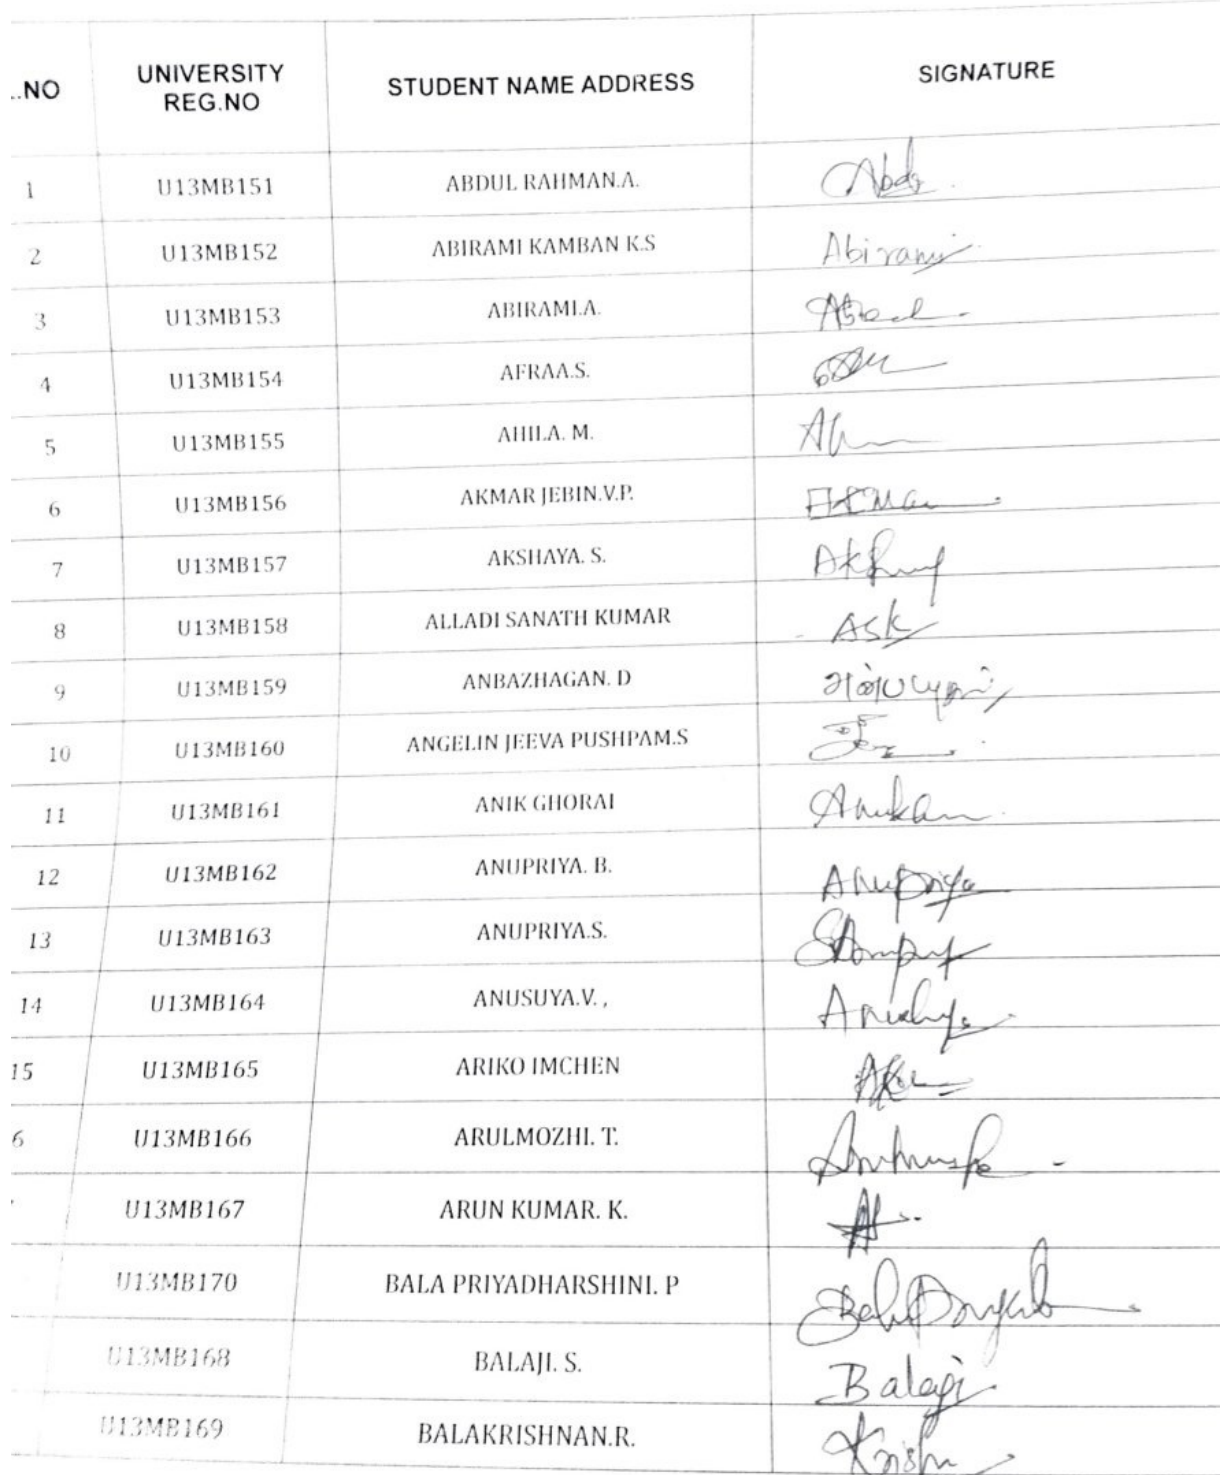 .NO UNIVERSITY REG.NO STUDENT NAME ADDRESS SIGNATURE
1 U13MB151 ABDUL RAHMAN.A. Abdr
2 U13MB152 ABIRAMI KAMBAN K.S Abirami
3 U13MB153 ABIRAMI.A.
4 U13MB154 AFRAA.S.
5 U13MB155 AHILA. M.
6 U13MB156 AKMAR JEBIN.V.P.
7 U13MB157 AKSHAYA. S.
8 U13MB158 ALLADI SANATH KUMAR ASK
9 U13MB159 ANBAZHAGAN. D
10 U13MB160 ANGELIN JEEVA PUSHPAM.S
11 U13MB161 ANIK GHORAI
12 U13MB162 ANUPRIYA. B. Anupriya
13 U13MB163 ANUPRIYA.S.
14 U13MB164 ANUSUYA.V. ,
15 U13MB165 ARIKO IMCHEN
6 U13MB166 ARULMOZHI. T.
U13MB167 ARUN KUMAR. K.
U13MB170 BALA PRIYADHARSHINI. P
U13MB168 BALAJI. S. Balaji
U13MB169 BALAKRISHNAN.R. Krishn